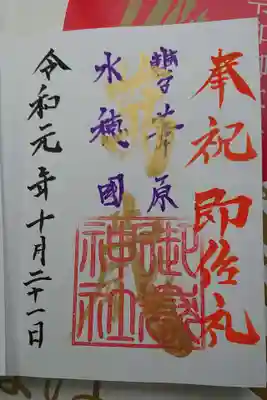 奉祝 即位礼
豊葦原
水穂國
神社
令和元年十月二十一日